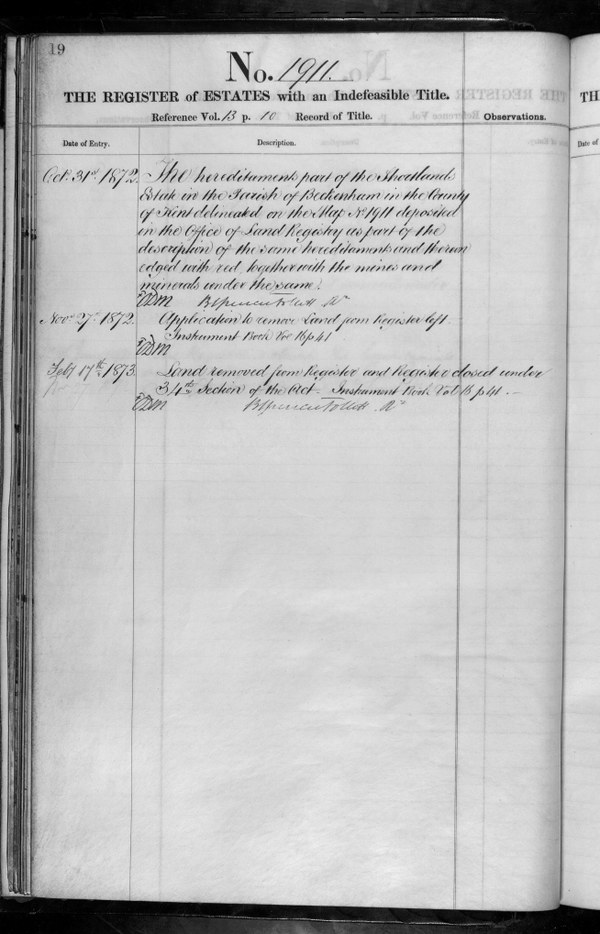 19
No. 1911.
THE REGISTER of ESTATES with an Indefeasible Title.
Reference Vol. 13 p. 10 Record of Title.
Observations.
Date of Entry.
Description.
Oct. 31st 1872.
The hereditaments part of the Shortlands
Estate in the Parish of Beckenham in the County
of Kent delineated on the Map No 1911 deposited
in the Office of Land Registry as part of the
description of the same hereditaments and thereon
edged with red, together with the mines and
minerals under the same.
Novr 27th 1872.
Application to remove Land from Register left.
Instrument Book Vol 16 p 41
Feby 17th 1873.
Land removed from Register and Register closed under
34th Section of the Act. Instrument Book Vol 16 p 41.
TH
Date of